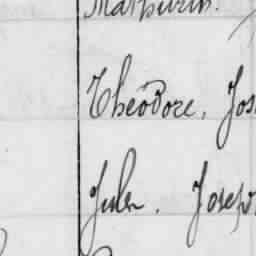 Mathurin.
Théodore, Jos
Jules. Joseph